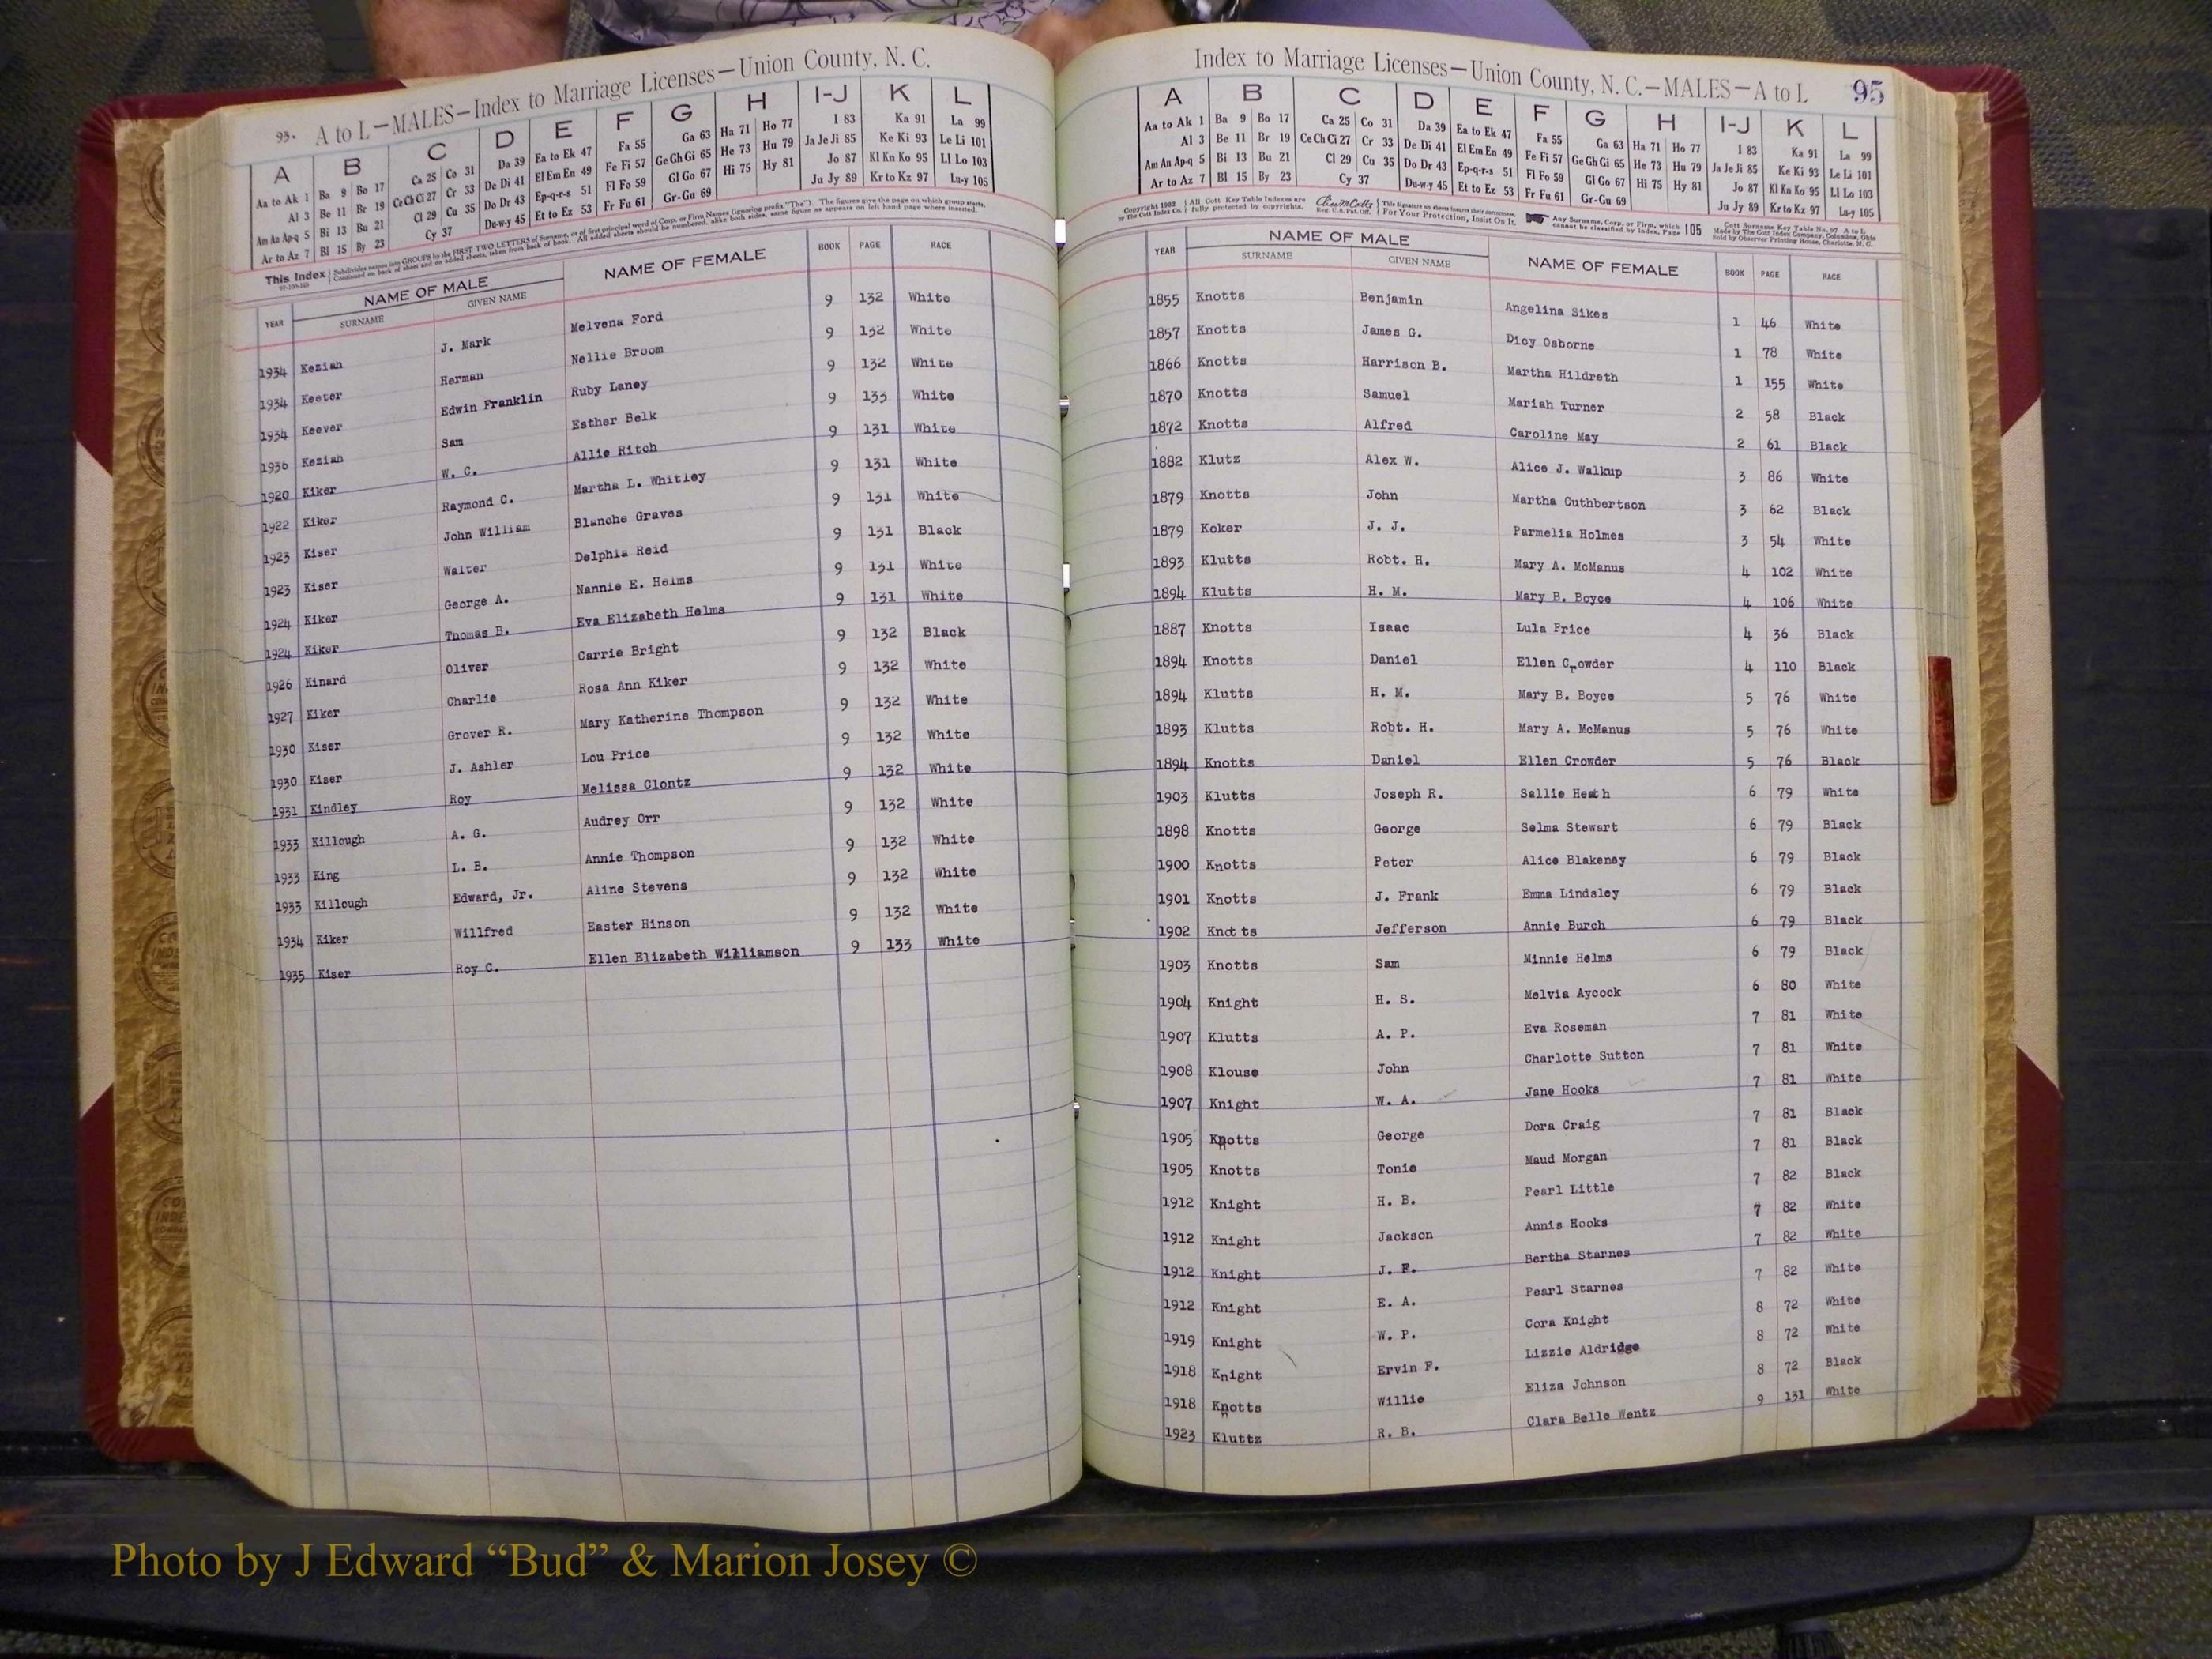 Index to Marriage Licenses—Union County, N. C.
93. A to L—MALES—Index to Marriage Licenses—Union County, N. C.
A B C D E F G H I-J K L
Aa to Ak 1 Ba 9 Bo 17 Ca 25 Co 31 Da 39 Ea to Ek 47 Fa 55 Ga 63 Ha 71 Ho 77 I 83 Ka 91 La 99
Al 3 Be 11 Br 19 Ce Ch Ci 27 Cr 33 De Di 41 El Em En 49 Fe Fi 57 Ge Gh Gi 65 He 73 Hu 79 Ja Je Ji 85 Ke Ki 93 Le Li 101
Am An Ap-q 5 Bi 13 Bu 21 Cl 29 Cu 35 Do Dr 43 Ep-q-r-s 51 Fl Fo 59 Gl Go 67 Hi 75 Hy 81 Jo 87 Kl Kn Ko 95 Ll Lo 103
Ar to Az 7 Bl 15 By 23 Cy 37 Du-w-y 45 Et to Ez 53 Fr Fu 61 Gr-Gu 69 Ju Jy 89 Kr to Kz 97 Lu-y 105
This Index Subdivides names into GROUPS by the FIRST TWO LETTERS of Surname, or of first principal word of Corp. or Firm Names (Ignoring prefix "The"). The figures give the page on which group starts.
Continued on back of sheet and on added sheets, taken from back of book. All added sheets should be numbered, alike both sides, same figure as appears on left hand page where inserted.
YEAR NAME OF MALE NAME OF FEMALE BOOK PAGE RACE
SURNAME GIVEN NAME
1934 Keziah J. Mark Melvena Ford 9 132 White
1934 Keeter Herman Nellie Broom 9 132 White
1934 Keever Edwin Franklin Ruby Laney 9 132 White
1936 Keziah Sam Esther Belk 9 133 White
1920 Kiker W. C. Allie Ritch 9 131 White
1922 Kiker Raymond C. Martha L. Whitley 9 131 White
1923 Kiser John William Blanche Graves 9 131 White
1923 Kiser Walter Delphia Reid 9 131 Black
1924 Kiker George A. Nannie E. Helms 9 131 White
1924 Kiker Thomas B. Eva Elizabeth Helms 9 131 White
1926 Kinard Oliver Carrie Bright 9 132 Black
1927 Kiker Charlie Rosa Ann Kiker 9 132 White
1930 Kiser Grover R. Mary Katherine Thompson 9 132 White
1930 Kiser J. Ashler Lou Price 9 132 White
1931 Kindley Roy Melissa Clontz 9 132 White
1933 Killough A. G. Audrey Orr 9 132 White
1933 King L. B. Annie Thompson 9 132 White
1933 Killough Edward, Jr. Aline Stevens 9 132 White
1934 Kiker Willfred Easter Hinson 9 132 White
1935 Kiser Roy C. Ellen Elizabeth Williamson 9 133 White
Index to Marriage Licenses—Union County, N. C.—MALES—A to L 95
A B C D E F G H I-J K L
Aa to Ak 1 Ba 9 Bo 17 Ca 25 Co 31 Da 39 Ea to Ek 47 Fa 55 Ga 63 Ha 71 Ho 77 I 83 Ka 91 La 99
Al 3 Be 11 Br 19 Ce Ch Ci 27 Cr 33 De Di 41 El Em En 49 Fe Fi 57 Ge Gh Gi 65 He 73 Hu 79 Ja Je Ji 85 Ke Ki 93 Le Li 101
Am An Ap-q 5 Bi 13 Bu 21 Cl 29 Cu 35 Do Dr 43 Ep-q-r-s 51 Fl Fo 59 Gl Go 67 Hi 75 Hy 81 Jo 87 Kl Kn Ko 95 Ll Lo 103
Ar to Az 7 Bl 15 By 23 Cy 37 Du-w-y 45 Et to Ez 53 Fr Fu 61 Gr-Gu 69 Ju Jy 89 Kr to Kz 97 Lu-y 105
Copyright 1932 by The Cott Index Co. All Cott Key Table Indexes are fully protected by copyrights. Reg. U. S. Pat. Off. This signature on sheets insures their correctness. For Your Protection, Insist On It. Any Surname, Corp. or Firm, which cannot be classified by Index, Page 105 Cott Surname Key Table No. 97 A to L Made by The Cott Index Company, Columbus, Ohio Sold by Observer Printing House, Charlotte, N. C.
YEAR NAME OF MALE NAME OF FEMALE BOOK PAGE RACE
SURNAME GIVEN NAME
1855 Knotts Benjamin Angelina Sikes 1 46 White
1857 Knotts James G. Dicy Osborne 1 78 White
1866 Knotts Harrison B. Martha Hildreth 1 155 White
1870 Knotts Samuel Mariah Turner 2 58 Black
1872 Knotts Alfred Caroline May 2 61 Black
1882 Klutz Alex W. Alice J. Walkup 3 86 White
1879 Knotts John Martha Cuthbertson 3 62 Black
1879 Koker J. J. Parmelia Holmes 3 54 White
1893 Klutts Robt. H. Mary A. McManus 4 102 White
1894 Klutts H. M. Mary B. Boyce 4 106 White
1887 Knotts Isaac Lula Price 4 36 Black
1894 Knotts Daniel Ellen Crowder 4 110 Black
1894 Klutts H. M. Mary B. Boyce 5 76 White
1893 Klutts Robt. H. Mary A. McManus 5 76 White
1894 Knotts Daniel Ellen Crowder 5 76 Black
1903 Klutts Joseph R. Sallie Heath 6 79 White
1898 Knotts George Selma Stewart 6 79 Black
1900 Knotts Peter Alice Blakeney 6 79 Black
1901 Knotts J. Frank Emma Lindsley 6 79 Black
1902 Knotts Jefferson Annie Burch 6 79 Black
1903 Knotts Sam Minnie Helms 6 79 Black
1904 Knight H. S. Melvia Aycock 6 80 White
1907 Klutts A. P. Eva Roseman 7 81 White
1908 Klouse John Charlotte Sutton 7 81 White
1907 Knight W. A. Jane Hooks 7 81 White
1905 Knotts George Dora Craig 7 81 Black
1905 Knotts Tonie Maud Morgan 7 81 Black
1912 Knight H. B. Pearl Little 7 82 Black
1912 Knight Jackson Annis Hooks 7 82 White
1912 Knight J. F. Bertha Starnes 7 82 White
1912 Knight E. A. Pearl Starnes 7 82 White
1919 Knight W. P. Cora Knight 8 72 White
1918 Knight Ervin F. Lizzie Aldridge 8 72 White
1918 Knotts Willie Eliza Johnson 8 72 Black
1923 Kluttz R. B. Clara Belle Wentz 9 131 White
Photo by J Edward “Bud” & Marion Josey ©